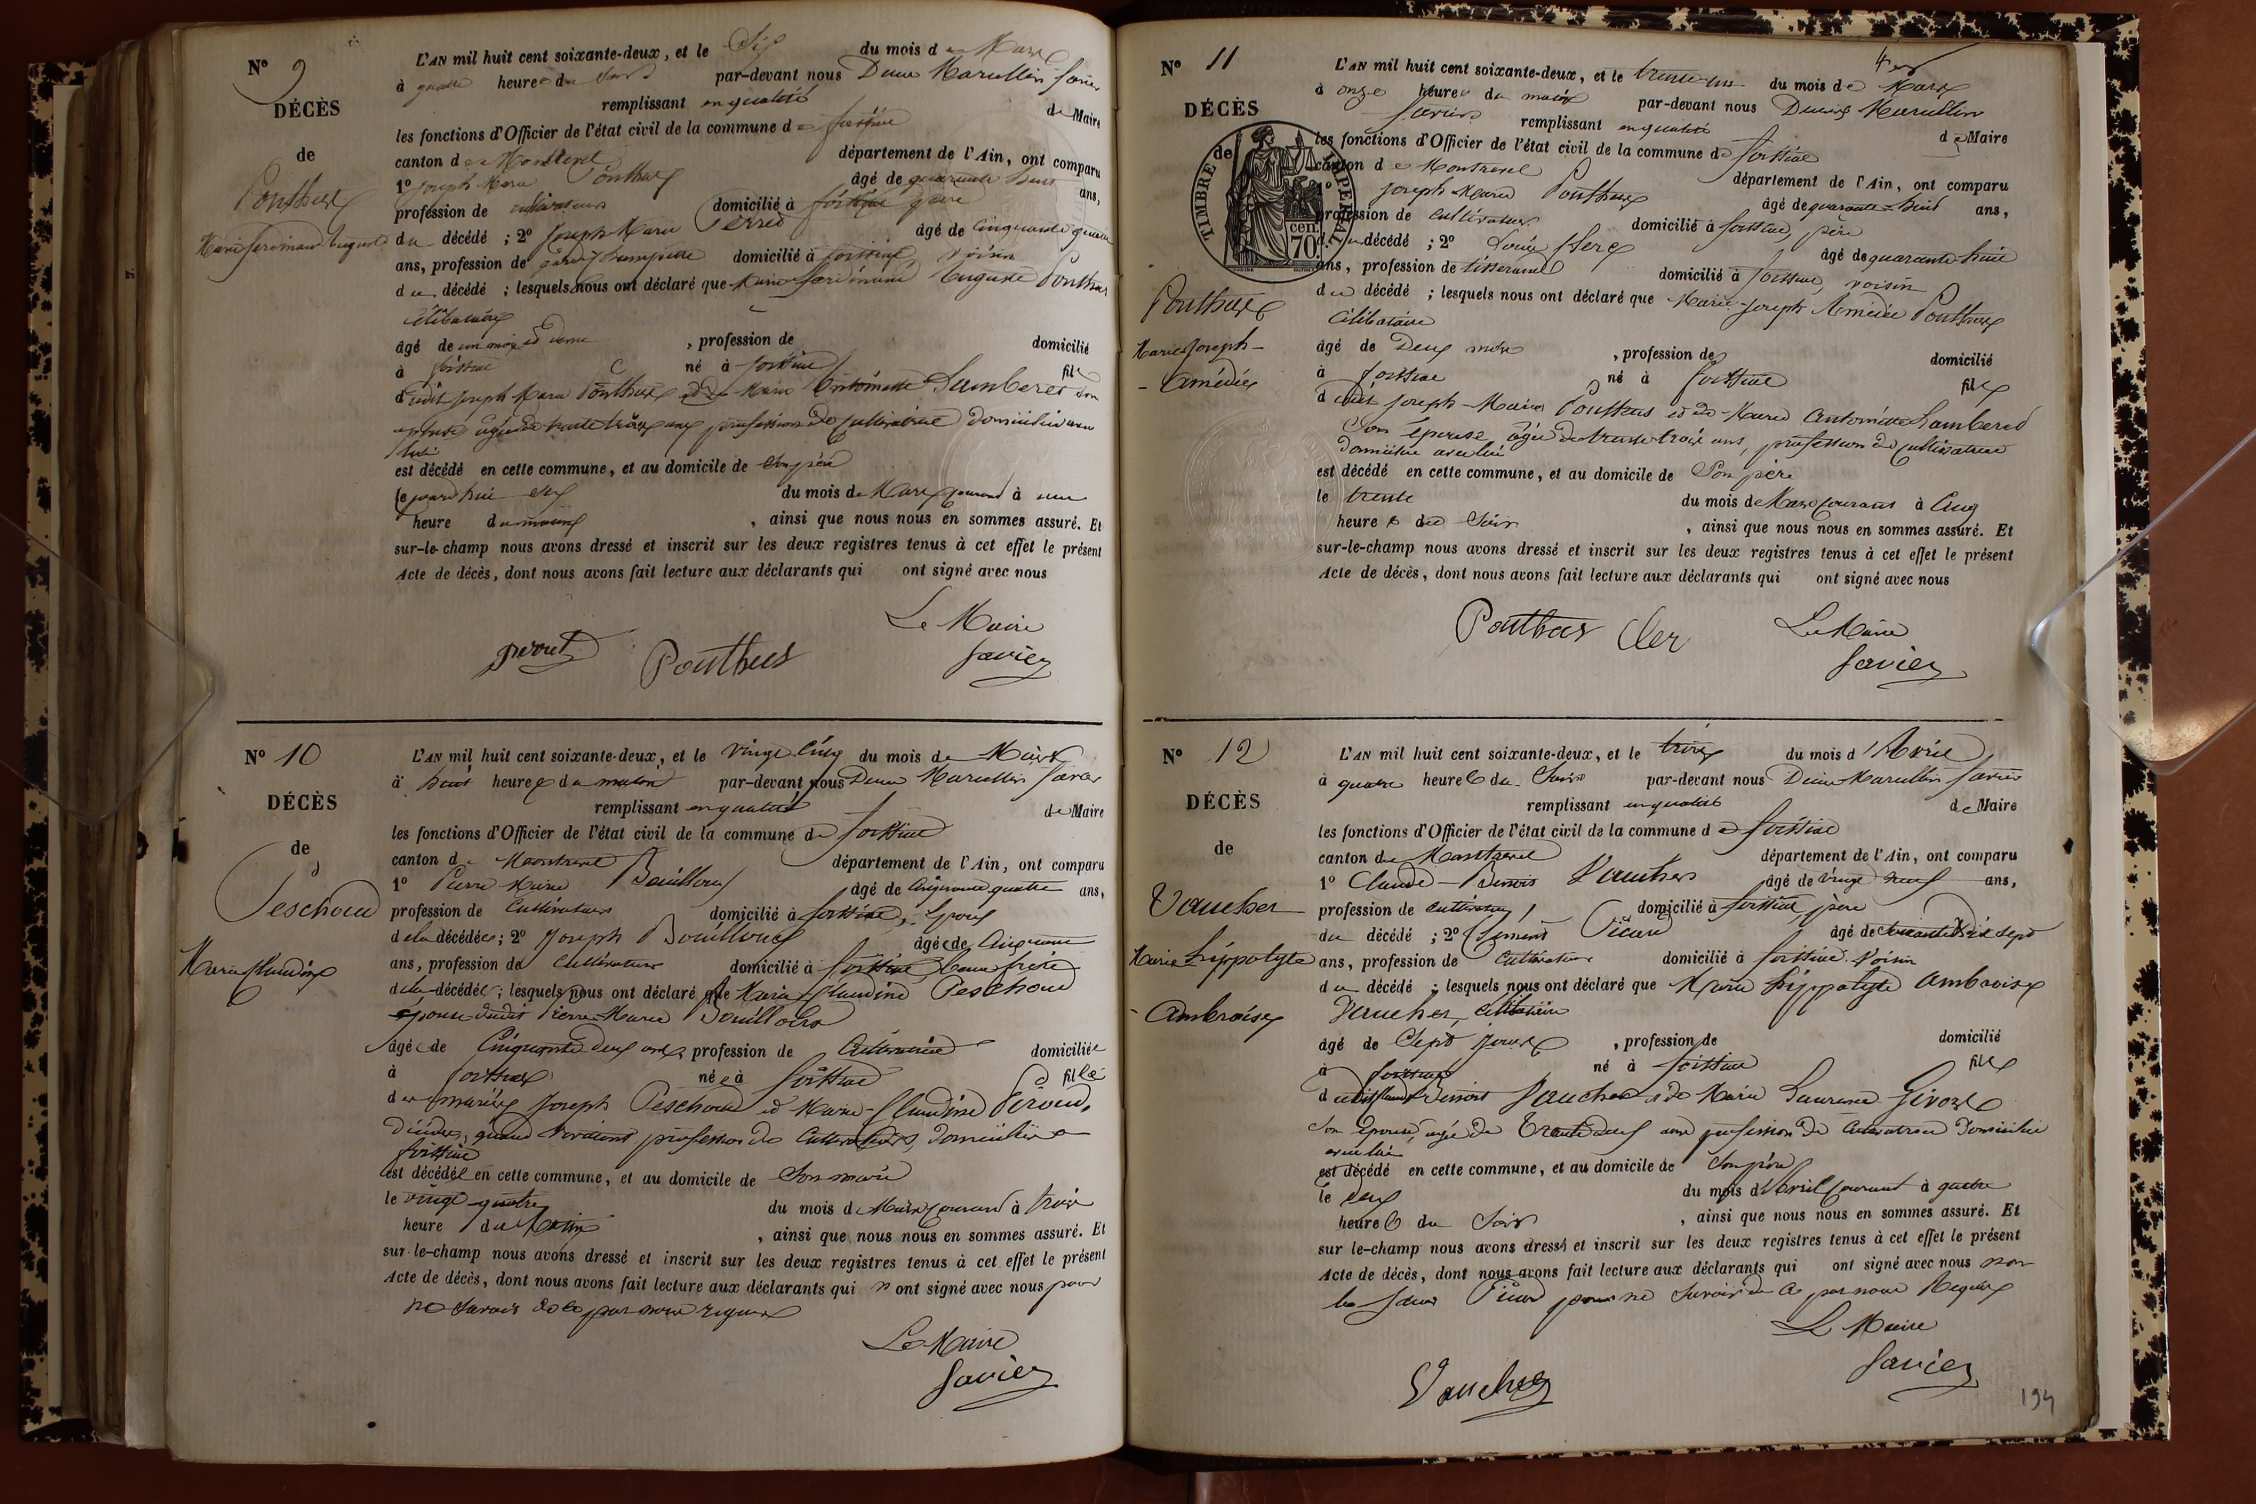 N° 9
DÉCÈS
de
Ponthus
Marie ferdinand Auguste
L'AN mil huit cent soixante-deux, et le Six du mois de Mars
à quatre heures du Soir par-devant nous Marcellin favier
remplissant en qualité de Maire
les fonctions d'Officier de l'état civil de la commune de foissiat
canton de Montrevel département de l'Ain, ont comparu
1° Joseph Marie Ponthus âgé de quarante huit ans,
profession de cultivateur domicilié à foissiat père
du décédé ; 2° Joseph Marie Perret âgé de Cinquante quatre
ans, profession de garde champêtre domicilié à foissiat, voisin
du décédé ; lesquels nous ont déclaré que Marie ferdinand Auguste Ponthus
célibataire
âgé de un mois et demi , profession de domicilié
à foissiat né à foissiat fils
dudit Joseph Marie Ponthus et de Marie Antoinette Lamberet son
épouse agée de trente trois ans profession de cultivatrice domiciliée avec
lui
est décédé en cette commune, et au domicile de son père
le jourd'hui six du mois de Mars courant à une
heure du matin , ainsi que nous nous en sommes assuré. Et
sur-le-champ nous avons dressé et inscrit sur les deux registres tenus à cet effet le présent
Acte de décès, dont nous avons fait lecture aux déclarants qui ont signé avec nous
Le Maire
perret Ponthus favier
N° 10
DÉCÈS
de
Peschoud
Marie Claudine
L'AN mil huit cent soixante-deux, et le vingt Cinq du mois de Mars
à huit heures du matin par-devant nous Marcellin favier
remplissant en qualité de Maire
les fonctions d'Officier de l'état civil de la commune de foissiat
canton de Montrevel département de l'Ain, ont comparu
1° Pierre Marie Bouilloux âgé de Cinquante quatre ans,
profession de Cultivateur domicilié à foissiat, Epoux
de la décédée ; 2° Joseph Bouilloux âgé de Cinquante
ans, profession de Cultivateur domicilié à foissiat, beau frère
de la décédée ; lesquels nous ont déclaré que Marie Claudine Peschoud
épouse dudit Pierre Marie Bouilloux
âgée de Cinquante deux ans, profession de Cultivatrice domiciliée
à foissiat née à foissiat fille
des mariés Joseph Peschoud et Marie-Claudine Peroud,
décédés, quand vivaient profession de Cultivateurs, domiciliés à
foissiat
est décédée en cette commune, et au domicile de Son mari
le vingt quatre du mois de Mars courant à trois
heure du Matin , ainsi que nous nous en sommes assuré. Et
sur-le-champ nous avons dressé et inscrit sur les deux registres tenus à cet effet le présent
Acte de décès, dont nous avons fait lecture aux déclarants qui n'ont signé avec nous pour
ne savoir de ce par nous requis
Le Maire
favier
N° 11
DÉCÈS
de
TIMBRE IMPERIAL
70 cen.
Ponthus
Marie Joseph-
-Amédée
L'AN mil huit cent soixante-deux, et le trente-un du mois de Mars
à onze heures du matin par-devant nous Marcellin
favier remplissant en qualité de Maire
les fonctions d'Officier de l'état civil de la commune de foissiat
canton de Montrevel département de l'Ain, ont comparu
1° Joseph Marie Ponthus âgé de quarante-huit ans,
profession de Cultivateur domicilié à foissiat, père
du décédé ; 2° Louis Clerc âgé de quarante huit
ans, profession de tisserand domicilié à foissiat, voisin
du décédé ; lesquels nous ont déclaré que Marie-Joseph Amédée Ponthus
Célibataire
âgé de Deux mois , profession de domicilié
à foissiat né à foissiat fils
dudit Joseph-Marie Ponthus et de Marie Antoinette Lamberet
Son épouse âgée de trente trois ans, profession de cultivatrice
domiciliée avec lui
est décédé en cette commune, et au domicile de Son père
le trente du mois de Mars courant à Cinq
heures du Soir , ainsi que nous nous en sommes assuré. Et
sur-le-champ nous avons dressé et inscrit sur les deux registres tenus à cet effet le présent
Acte de décès, dont nous avons fait lecture aux déclarants qui ont signé avec nous
Ponthus Cler Le Maire
favier
N° 12
DÉCÈS
de
Vaucher
Marie hippolyte
-Ambroise
L'AN mil huit cent soixante-deux, et le trois du mois d'Avril
à quatre heures du Soir par-devant nous Marcellin favier
remplissant en qualité de Maire
les fonctions d'Officier de l'état civil de la commune de foissiat
canton de Montrevel département de l'Ain, ont comparu
1° Claude-Benoit Vaucher âgé de vingt neuf ans,
profession de cultivateur, domicilié à foissiat père
du décédé ; 2° Clément Picard âgé de soixante dix sept
ans, profession de Cultivateur domicilié à foissiat voisin
du décédé ; lesquels nous ont déclaré que Marie hippolyte Ambroise
Vaucher, célibataire
âgé de Sept jours , profession de domicilié
à foissiat né à foissiat fils
dudit Claude Benoit Vaucher et de Marie Laurence Givors
Son épouse, agée de Trente deux ans profession de Cultivatrice Domiciliée
avec lui
est décédé en cette commune, et au domicile de Son père
le deux du mois d'Avril courant à quatre
heures du Soir , ainsi que nous nous en sommes assuré. Et
sur le-champ nous avons dressé et inscrit sur les deux registres tenus à cet effet le présent
Acte de décès, dont nous avons fait lecture aux déclarants qui ont signé avec nous non
le sieur Picard pour ne savoir de ce par nous Requis
Le Maire
Vaucher favier
194